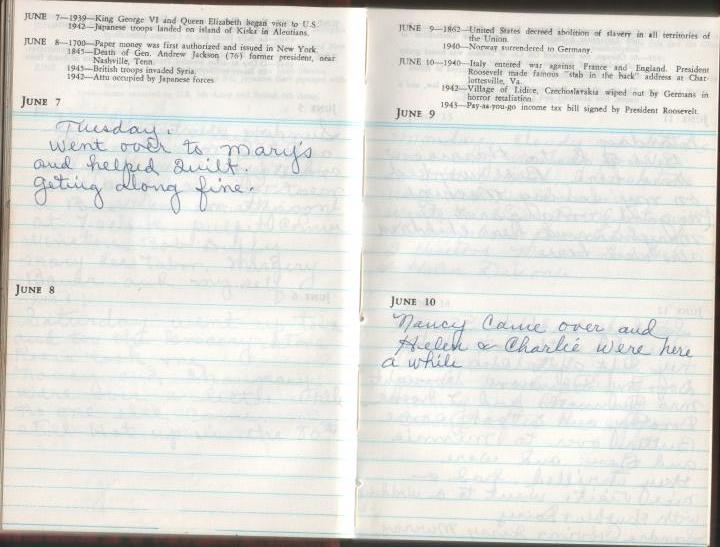 JUNE 7—1939—King George VI and Queen Elizabeth began visit to U.S.
1942—Japanese troops landed on island of Kiska in Aleutians.
JUNE 8—1700—Paper money was first authorized and issued in New York.
1845—Death of Gen. Andrew Jackson (76) former president, near
Nashville, Tenn.
1943—British troops invaded Syria.
1942—Attu occupied by Japanese forces
JUNE 7
Tuesday.
Went over to Mary's
and helped Quilt.
geting along fine.
JUNE 8
JUNE 9—1862—United States decreed abolition of slavery in all territories of
the Union.
1940—Norway surrendered to Germany.
JUNE 10—1940—Italy entered war against France and England. President
Roosevelt made famous "stab in the back" address at Char-
lottesville, Va.
1942—Village of Lidice, Czechoslavakia wiped out by Germans in
horror retaliation.
1943—Pay-as-you-go income tax bill signed by President Roosevelt.
JUNE 9
JUNE 10
Nancy Came over and
Helen & Charlie were here
a while